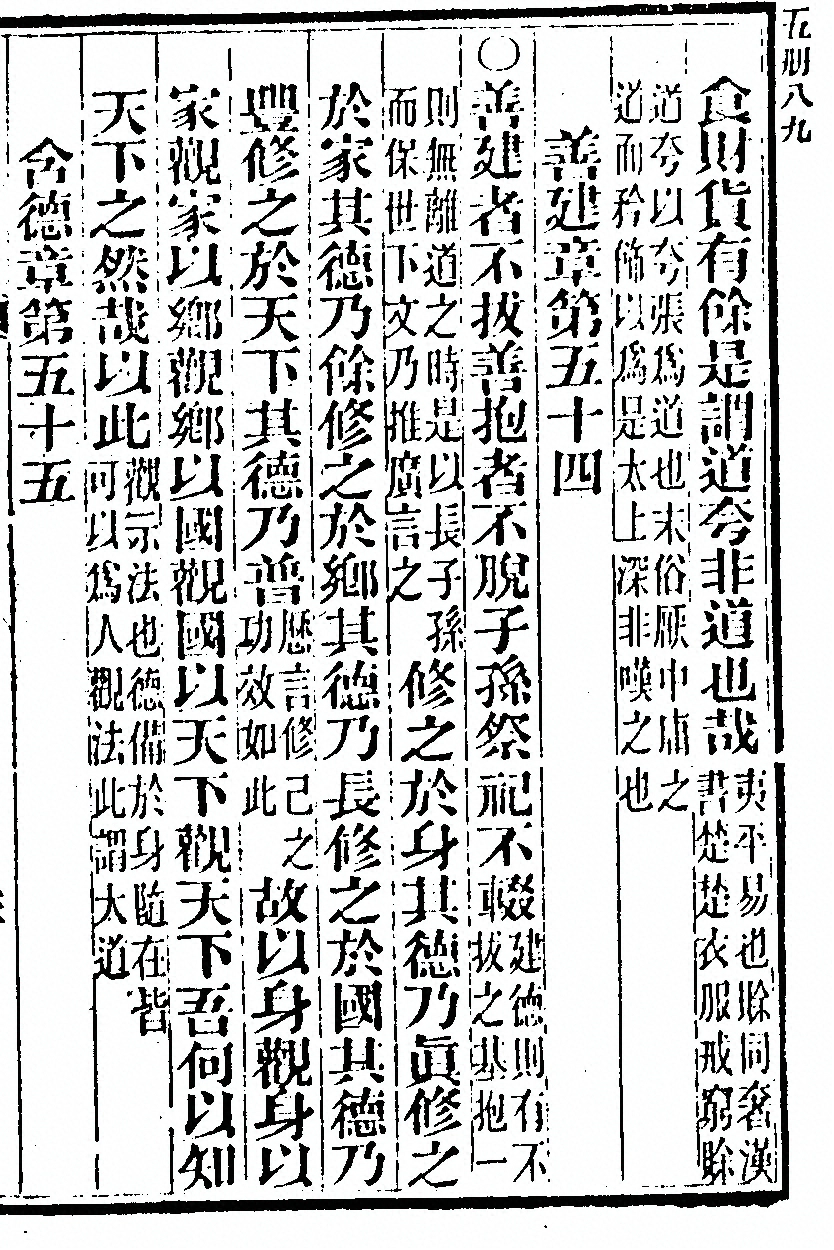 五册八九
食財貨有餘是謂道夸非道也哉夷平易也賒同奢漢
書楚楚衣服戒窮賒
道夸以夸張爲道也末俗厭中庸之
道而矜飾以爲是太上深非嘆之也
善建章第五十四
〇善建者不拔善抱者不脫子孫祭祀不輟建德則有不
拔之基抱一
則無離道之時是以長子孫
而保世下文乃推廣言之
修之於身其德乃眞修之
於家其德乃餘修之於鄉其德乃長修之於國其德乃
豐修之於天下其德乃普歷言修己之
功效如此
故以身觀身以
家觀家以鄉觀鄉以國觀國以天下觀天下吾何以知
天下之然哉以此觀示法也德備於身隨在皆
可以爲人觀法此謂大道
含德章第五十五